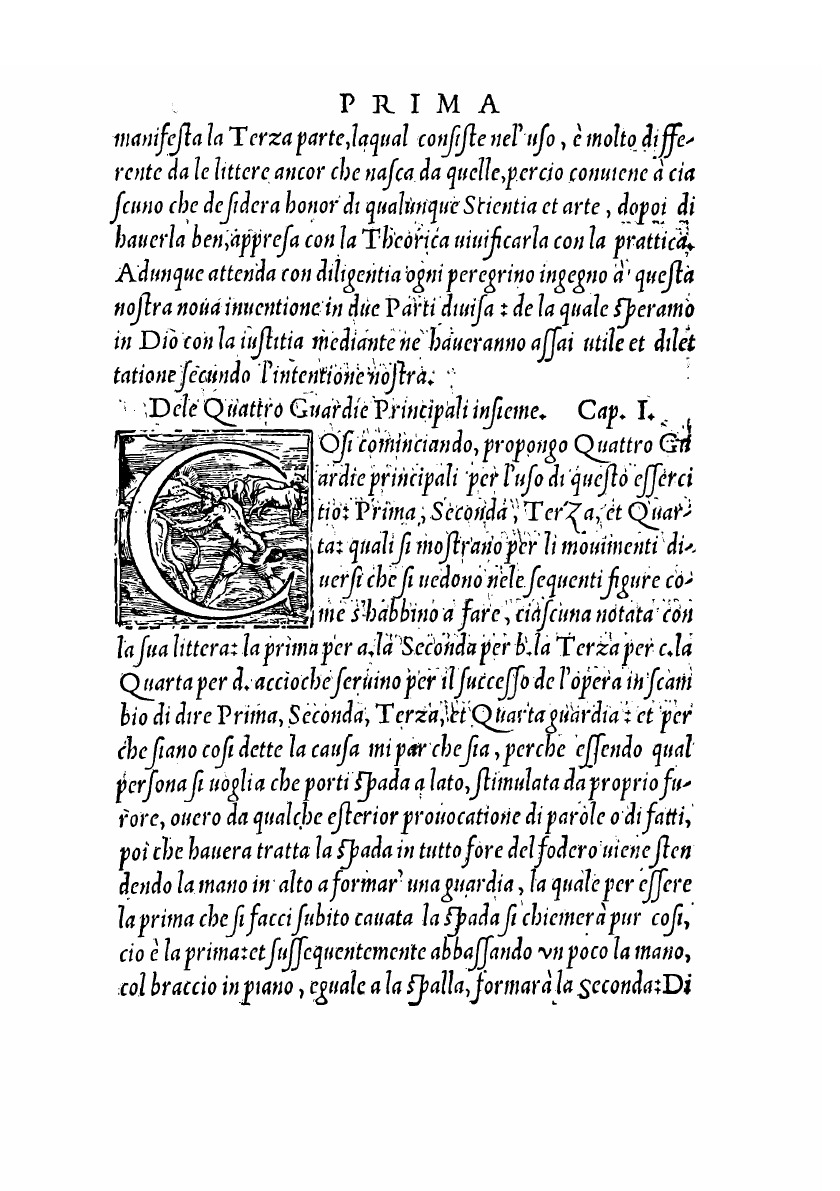 PRIMA
manifesta la Terza parte, laqual consiste nel' uso, è molto diffe-
rente da le littere ancor che nasca da quelle, percio conuiene à cia
scuno che desidera honor di qualunque Scientia et arte, dopoi di
hauerla ben, appresa con la Theorica uiuificarla con la prattica.
Adunque attenda con diligentia ogni peregrino ingegno à questa
nostra noua inuentione in due Parti diuisa: de la quale speramo
in Dio con la iustitia mediante ne haueranno assai utile et dilet
tatione secundo l'intentione nostra.
Dele Quattro Guardie Principali insieme. Cap. I.
COsi cominciando, propongo Quattro Gu
ardie principali per l'uso di questo esserci
tio: Prima, Seconda, Terza, et Quar-
ta: quali si mostrano per li mouimenti di-
uersi che si uedono nele sequenti figure co-
me s'habbino a fare, ciascuna notata con
la sua littera: la prima per a. la Seconda per b. la Terza per c. la
Quarta per d. accioche seruino per il successo de l'opera in scam
bio di dire Prima, Seconda, Terza, et Quarta guardia: et per
che siano cosi dette la causa mi par che sia, perche essendo qual
persona si uoglia che porti spada a lato, stimulata da proprio fu-
rore, ouero da qualche esterior prouocatione di parole o di fatti,
poi che hauera tratta la spada in tutto fore del fodero uiene sten
dendo la mano in alto a formar una guardia, la quale per essere
la prima che si facci subito cauata la spada si chiemerà pur cosi,
cio è la prima: et sussequentemente abbassando vn poco la mano,
col braccio in piano, eguale a la spalla, formarà la Seconda: Di